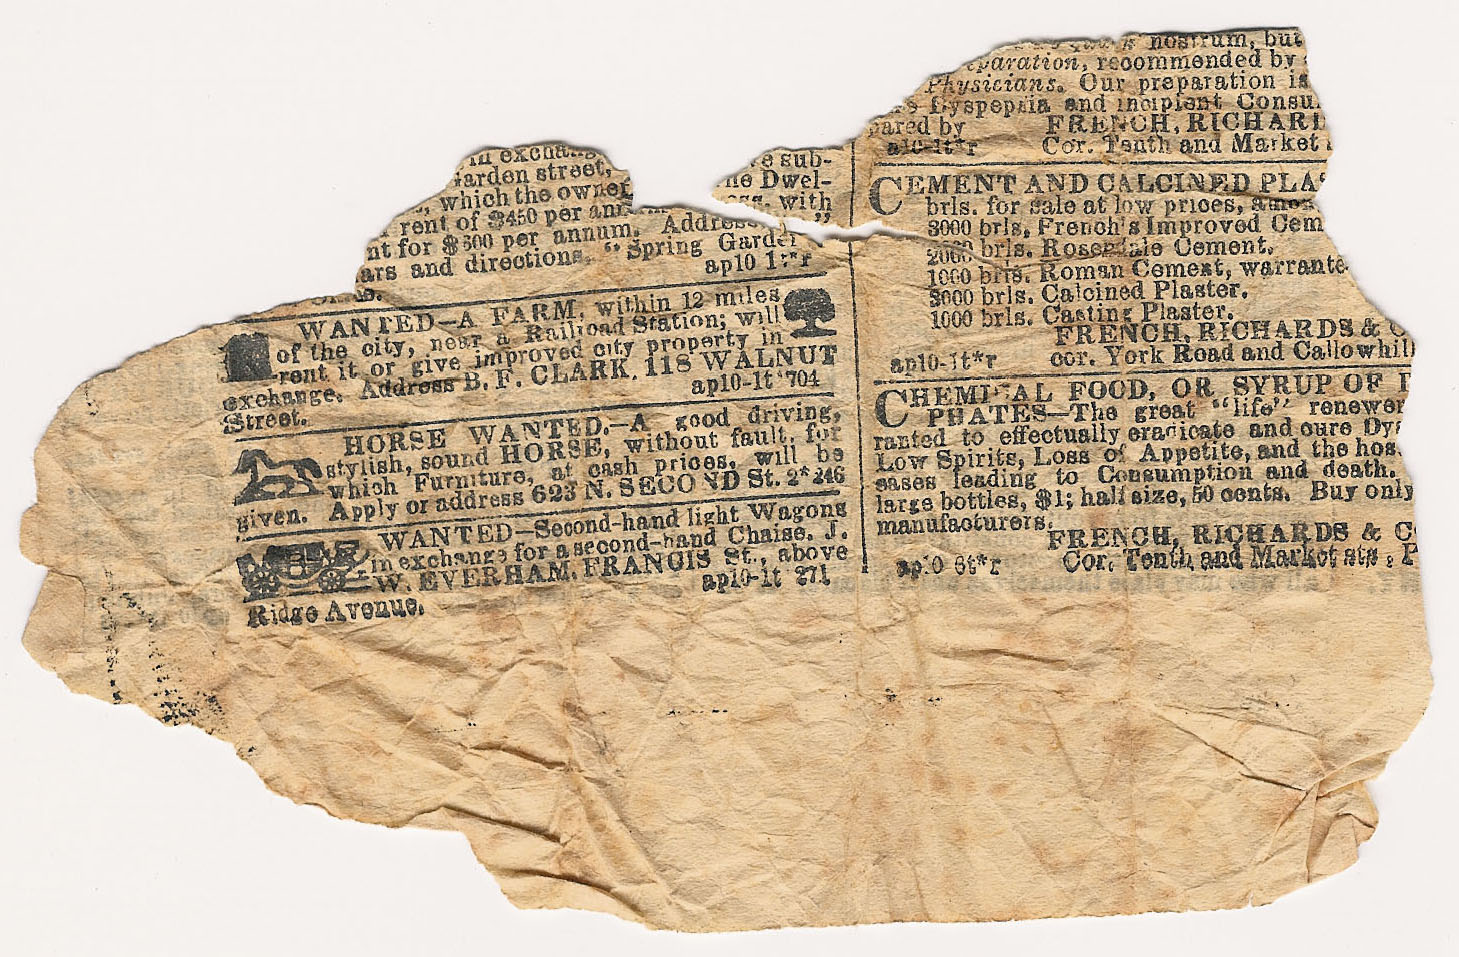 in exchang
arden street,
, which the owner
rent of $450 per an
nt for $500 per annum. Address
ars and directions, "Spring Garde
ap10 1t*r
ve sub-
he Dwel-
with
"
WANTED—A FARM, within 12 miles
of the city, near a Railroad Station; will
rent it or give improved city property in
exchange. Address B. F. CLARK, 118 WALNUT
Street. ap10-1t*704
HORSE WANTED.—A good driving,
stylish, sound HORSE, without fault, for
which Furniture, at cash prices, will be
given. Apply or address 623 N. SECOND St. 2*246
WANTED—Second-hand light Wagons
in exchange for a second-hand Chaise. J.
W. EVERHAM, FRANCIS St., above
Ridge Avenue. ap10-1t 271
nostrum, but
eparation, recommended by
Physicians. Our preparation is
Dyspepsia and incipient Consu
pared by FRENCH, RICHARD
a10-1t*r Cor. Tenth and Market
CEMENT AND CALCINED PLAS
brls. for sale at low prices, amon
3000 brls. French's Improved Cem
2000 brls. Rosendale Cement.
1000 brls. Roman Cement, warrante
3000 brls. Calcined Plaster.
1000 brls. Casting Plaster.
FRENCH, RICHARDS & C
ap10-1t*r cor. York Road and Callowhill
CHEMICAL FOOD, OR SYRUP OF
PHATES—The great "life" renewer
ranted to effectually eradicate and cure Dys
Low Spirits, Loss of Appetite, and the hos
eases leading to Consumption and death.
large bottles, $1; half size, 50 cents. Buy only
manufacturers.
FRENCH, RICHARDS & C
ap10 6t*r Cor. Tenth and Market sts., P